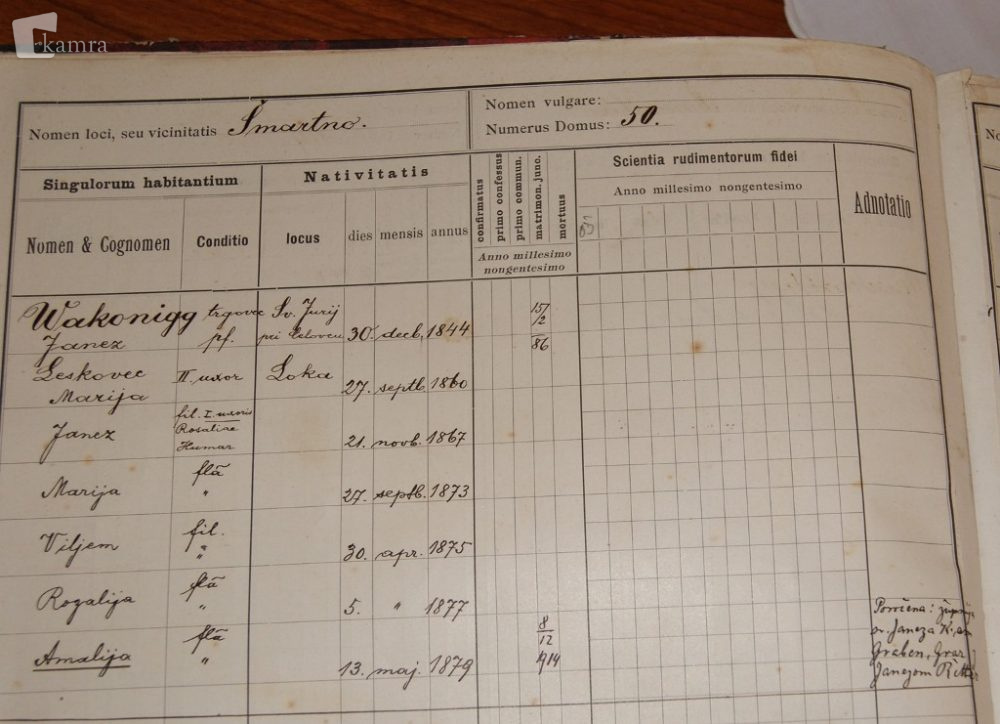 kamra
Nomen loci, seu vicinitatis Šmartno.
Nomen vulgare:
Numerus Domus: 50.
Singulorum habitantium
Nativitatis
confirmatus
primo confessus
primo commun.
matrimon. juno.
mortuus
Scientia rudimentorum fidei
Adnotatio
Nomen & Cognomen
Conditio
locus
dies
mensis
annus
Anno millesimo
nongentesimo
Anno millesimo nongentesimo
Wakonigg trgovec Sv. Jurij
15/2
Janez pf. pri 30. decb. 1844
86
Leskovec II. uxor Loka 27. septb. 1860
Marija
fil. I. uxoris
Rosaliae
Janez Humar 21. novb. 1867
flā
Marija " 27. septb. 1873
fil.
Viljem " 30. apr. 1875
flā
Rozalija " 5. " 1877
flā
8/12
Amalija " 13. maj. 1879
1914
Poročena: župnija
sv. Janeza K.
Graben, Graz
Janezom Ritter